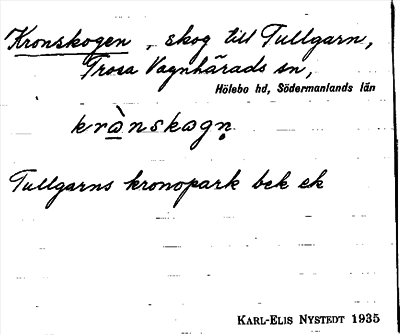 Kronskogen, skog till Tullgarn,
Trosa Vagnhärads sn,
Hölebo hd, Södermanlands län
krὰnskogṇ
Tullgarns kronopark bek ek
KARL-ELIS NYSTEDT 1935